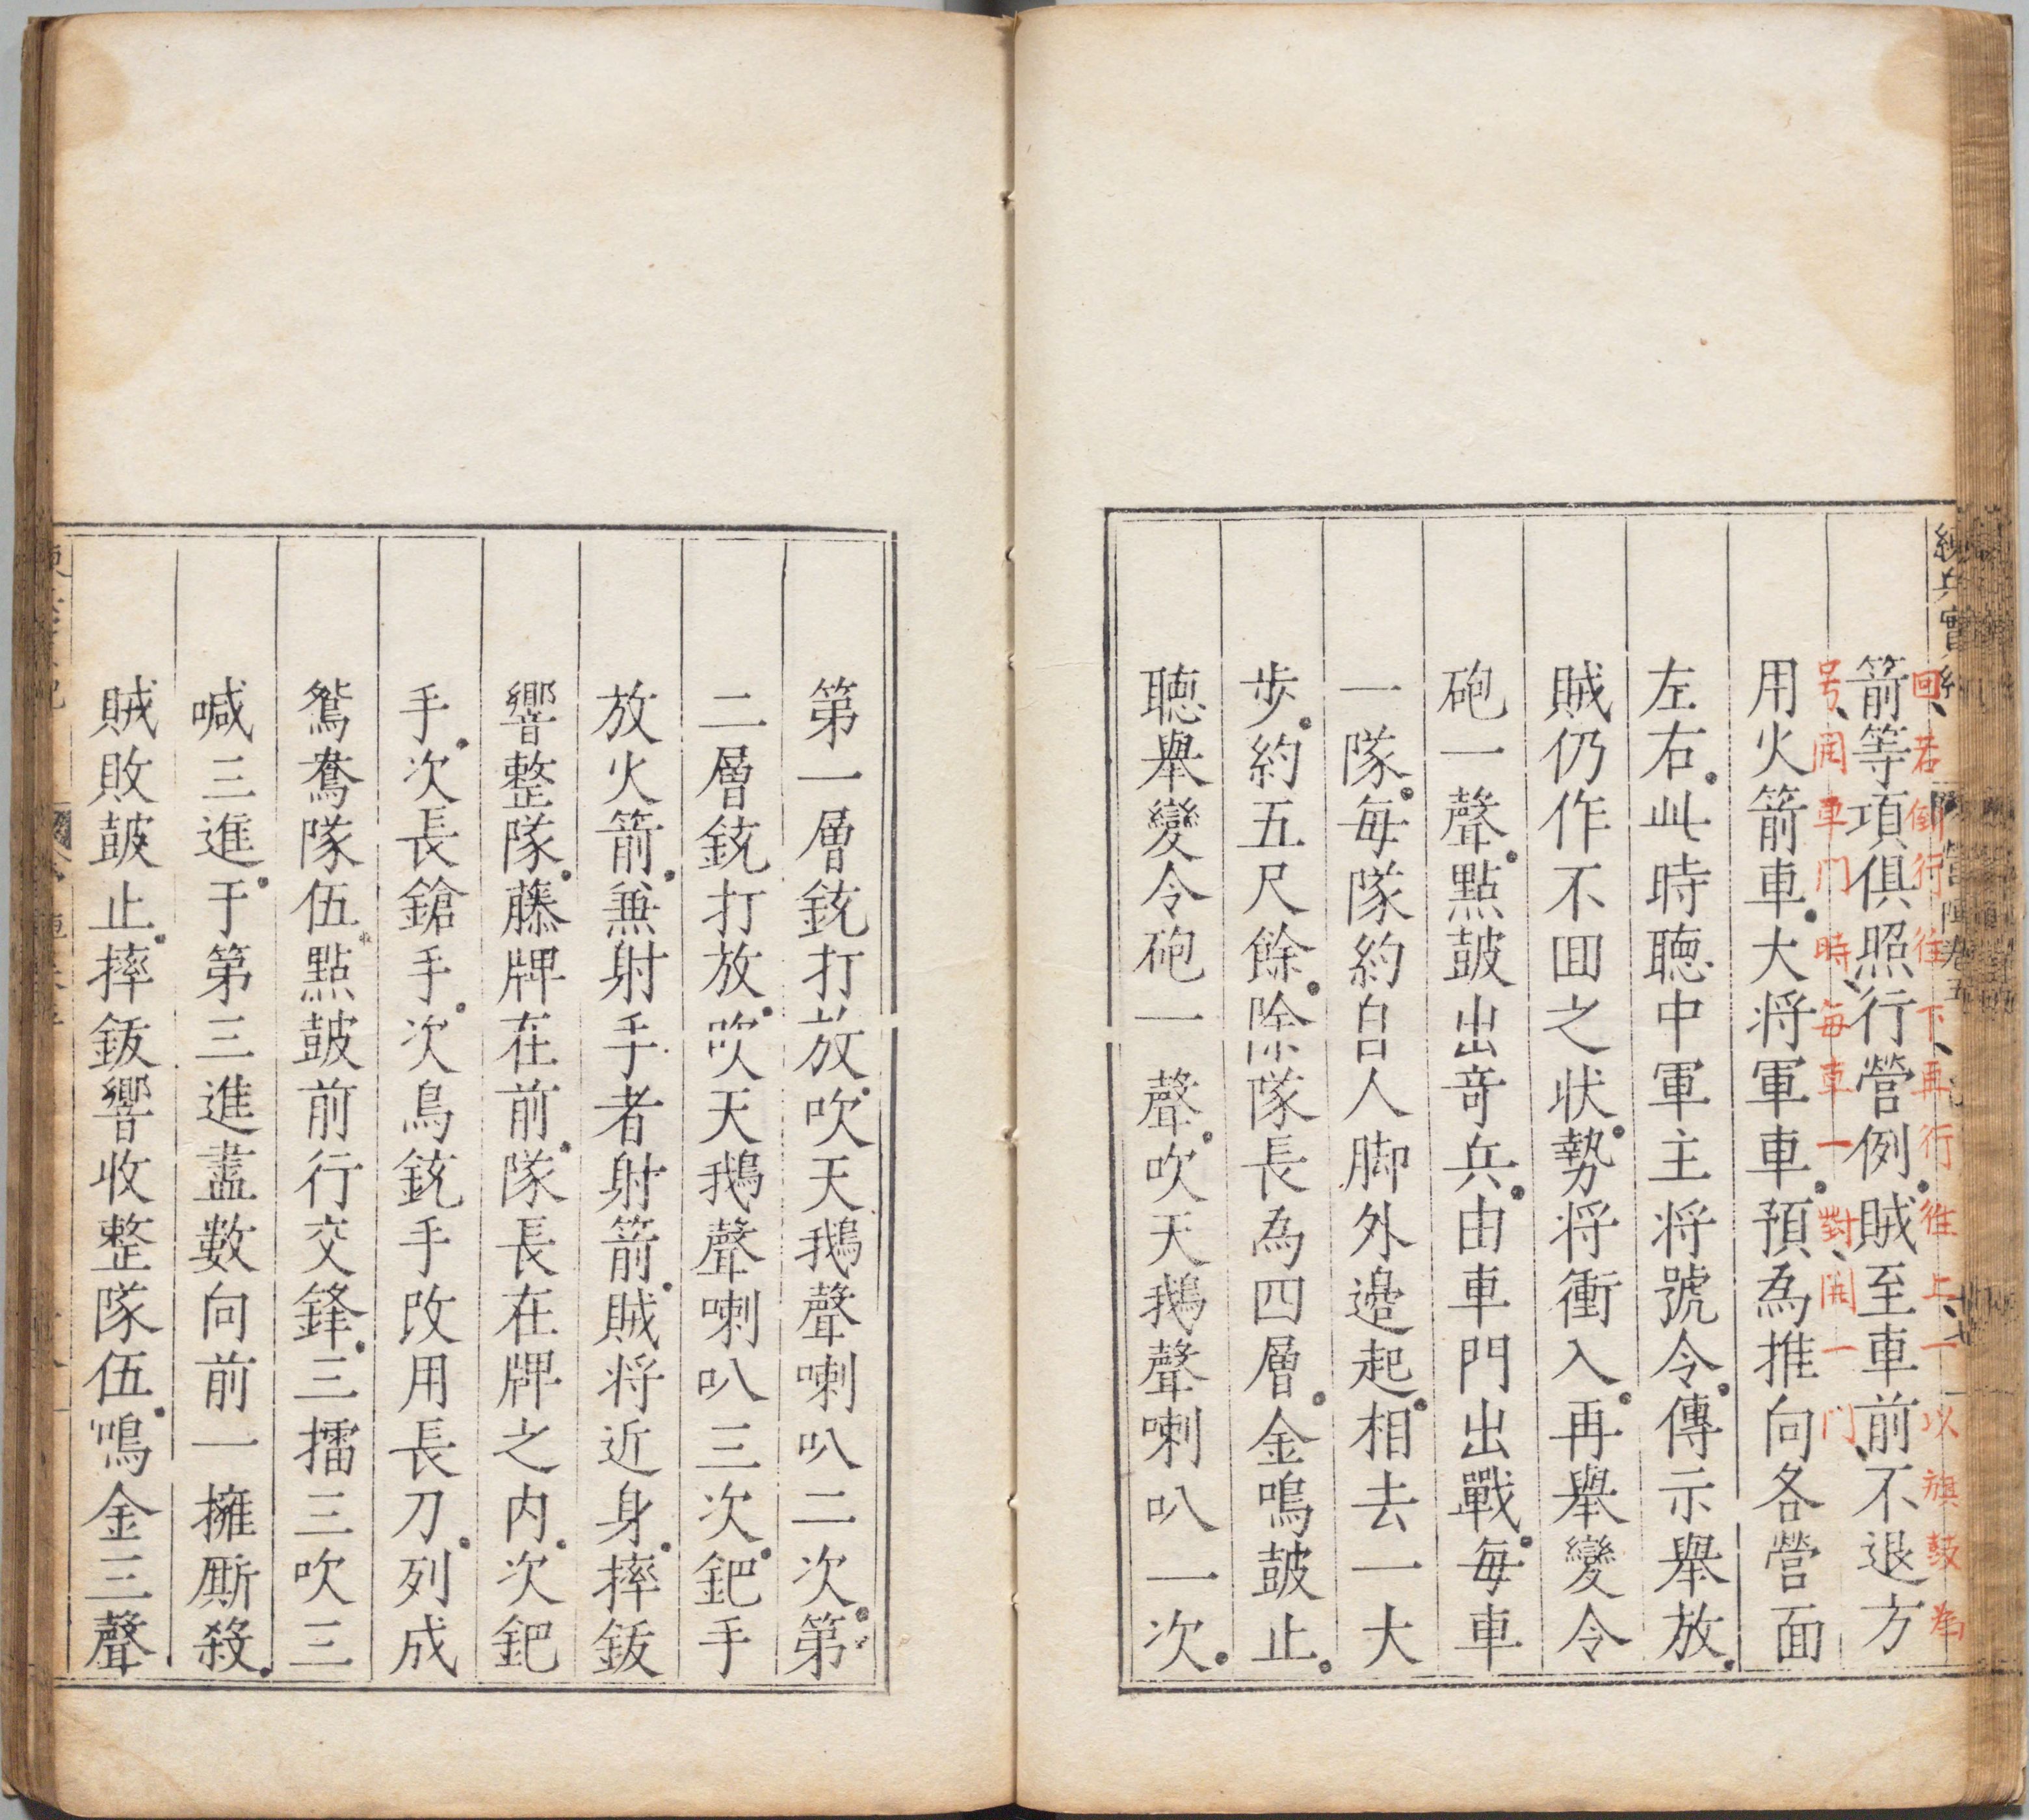 練兵實紀
回若倒行往下再行往上一以旗鼓為
箭等項俱照行營例賊至車前不退方
号開車門時每車一對開一門
用火箭車大将軍車預為推向各營面
左右此時聴中軍主将號令傳示舉放
賊仍作不囬之状勢将衝入再舉變令
砲一聲點皷出竒兵由車門出戰每車
一隊每隊約㠯人脚外邉起相去一大
歩約五尺餘除隊長為四層金鳴皷止
聴舉變令砲一聲吹天鵝聲喇叭一次
第一層銃打放吹天鵝聲喇叭二次第
二層銃打放吹天鵝聲喇叭三次鈀手
放火箭兼射手者射箭賊将近身摔鈸
響整隊藤牌在前隊長在牌之内次鈀
手次長鎗手次鳥銃手改用長刀列成
鴛鴦隊伍點皷前行交鋒三擂三吹三
喊三進于第三進盡數向前一擁厮殺
賊敗皷止摔鈸響收整隊伍鳴金三聲